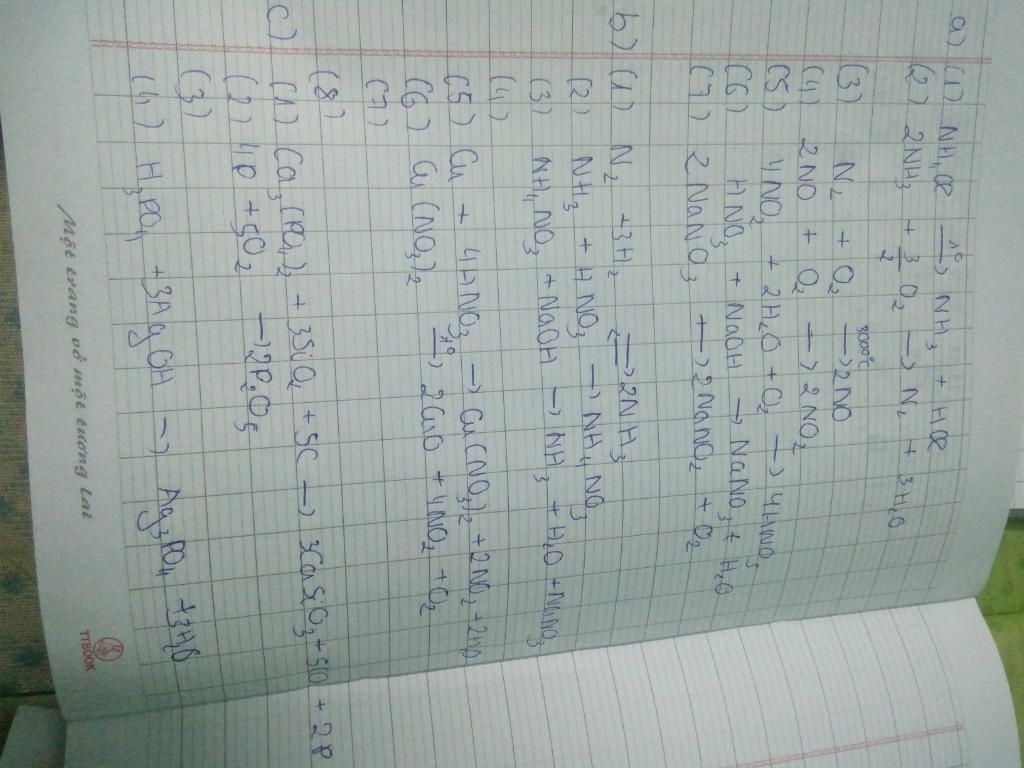 a) (1) NH₄Cl →(t°) NH₃ + HCl
(2) 2NH₃ + 3/2 O₂ → N₂ + 3H₂O
(3) N₂ + O₂ →(3000°C) 2NO
(4) 2NO + O₂ → 2NO₂
(5) 4NO₂ + 2H₂O + O₂ → 4HNO₃
(6) HNO₃ + NaOH → NaNO₃ + H₂O
(7) 2NaNO₃ → 2NaNO₂ + O₂
b) (1) N₂ + 3H₂ ⇌ 2NH₃
(2) NH₃ + HNO₃ → NH₄NO₃
(3) NH₄NO₃ + NaOH → NH₃ + H₂O + NaNO₃
(4)
(5) Cu + 4HNO₃ → Cu(NO₃)₂ + 2NO₂ + 2H₂O
(6) Cu(NO₃)₂ →(t°) 2CuO + 4NO₂ + O₂
(7)
(8)
c) (1) Ca₃(PO₄)₂ + 3SiO₂ + 5C → 3CaSiO₃ + 5CO + 2P
(2) 4P + 5O₂ → 2P₂O₅
(3)
(4) H₃PO₄ + 3AgOH → Ag₃PO₄ + 3H₂O
Một trang vở một tương lai
TTBOOK